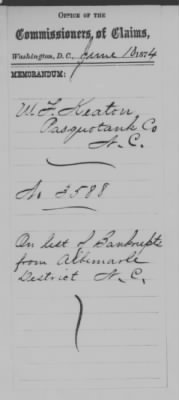 OFFICE OF THE
Commissioners of Claims,
Washington, D.C., June 18 1874
MEMORANDUM:
W. F. Keaton
Pasquotank Co
N. C.
No 3588
On list of Bankrupts
from Albimarle
District N. C.